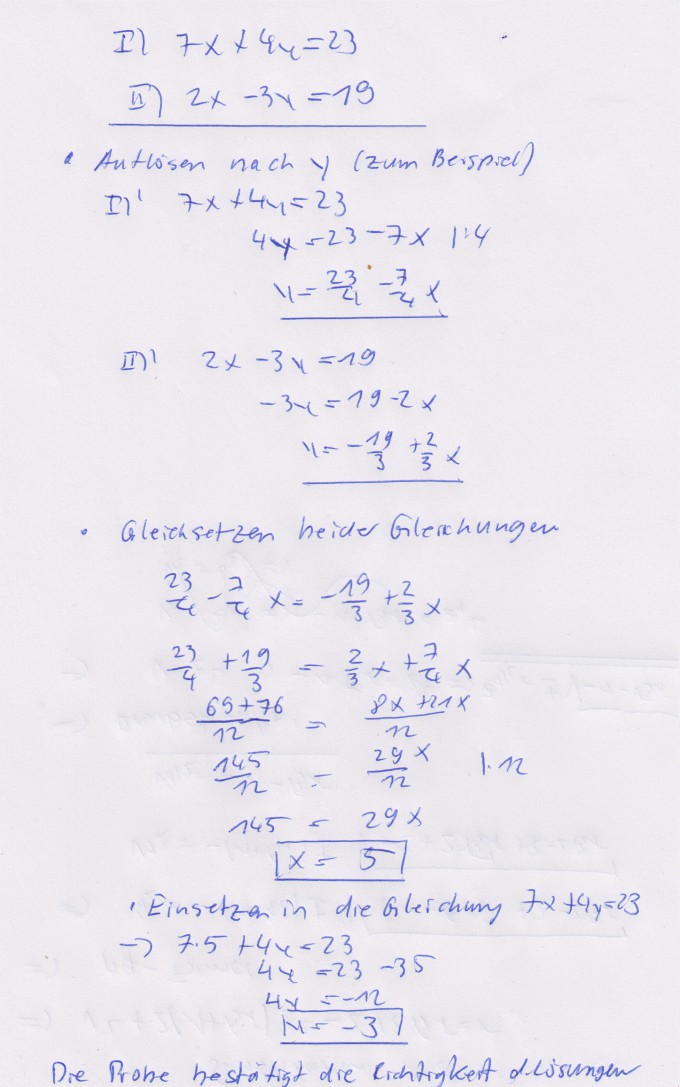 I) 7x+4y=23
II) 2x -3y =19
• Auflösen nach y (zum Beispiel)
I)' 7x+4y=23
4y =23-7x |:4
y= 23/4 -7/4 x
II)' 2x -3y =19
-3y =19-2x
y= -19/3 +2/3 x
• Gleichsetzen beider Gleichungen
23/4 -7/4 x= -19/3 +2/3 x
23/4 +19/3 = 2/3 x +7/4 x
69+76/12 = 8x+21x/12
145/12 = 29x/12 |·12
145 = 29x
x = 5
• Einsetzen in die Gleichung 7x+4y=23
-> 7·5 +4y=23
4y =23 -35
4y =-12
y= -3
Die Probe bestätigt die Richtigkeit d. Lösungen